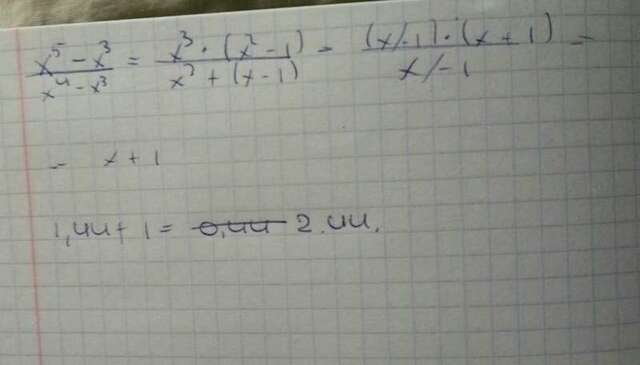 x⁵ - x³ / x⁴ - x³ = x³ · (x² - 1) / x³ + (x - 1) = (x - 1) · (x + 1) / x - 1 =
= x + 1
1,44 + 1 = 0,44 2.44.